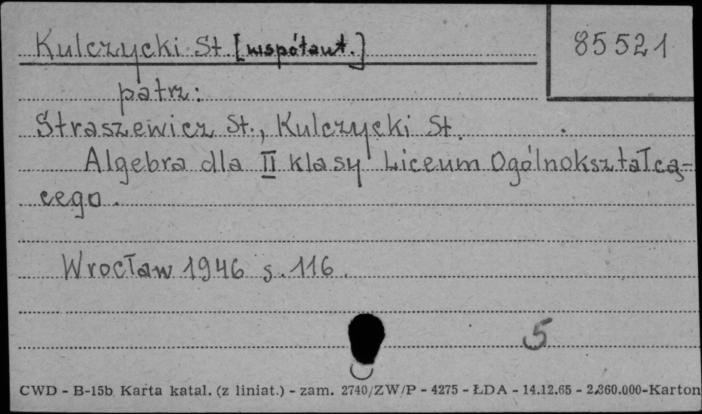 Kulczycki St [współaut.]
85521
patrz:
Straszewicz St., Kulczycki St.
Algebra dla II klasy Liceum Ogólnokształcą-
cego.
Wrocław 1946 s. 116.
5
CWD - B-15b Karta katal. (z liniat.) - zam. 2740/ZW/P - 4275 - ŁDA - 14.12.65 - 2.860.000-Karton